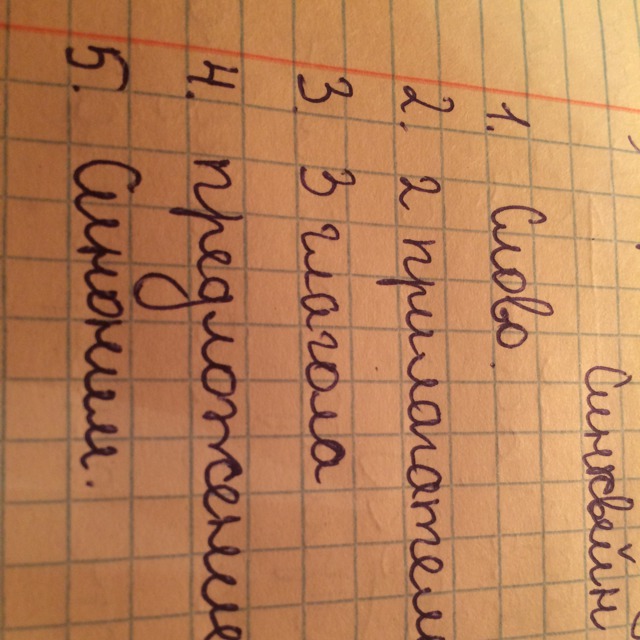 Синквейн
1. Слово
2. 2 прилагател
3. 3 глагола
4. предложение
5. Синоним.